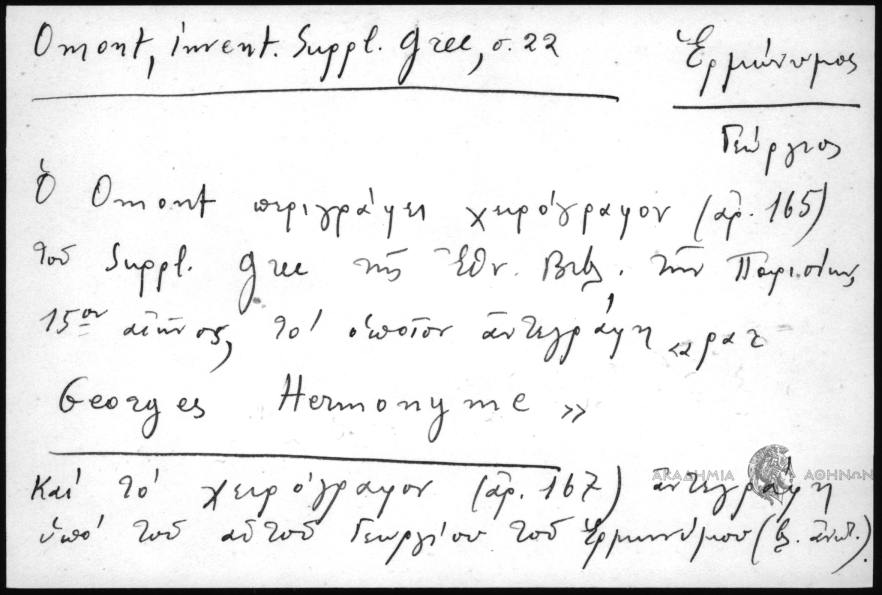 Omont, invent. Suppl. Grec, σ. 22
Ἑρμώνυμος
Γεώργιος
Ὁ Omont περιγράφει χειρόγραφον (ἀρ. 165)
τοῦ Suppl. Grec τῆς Ἐθν. Βιβλ. τῶν Παρισίων,
15ου αἰῶνος, τὸ ὁποῖον ἀντεγράφη «par
Georges Hermonyme»
ΑΚΑΔΗΜΙΑ ΑΘΗΝΩΝ
Καὶ τὸ χειρόγραφον (ἀρ. 167) ἀντεγράφη
ὑπὸ τοῦ αὐτοῦ Γεωργίου τοῦ Ἑρμωνύμου (β. ἀνωτ.).